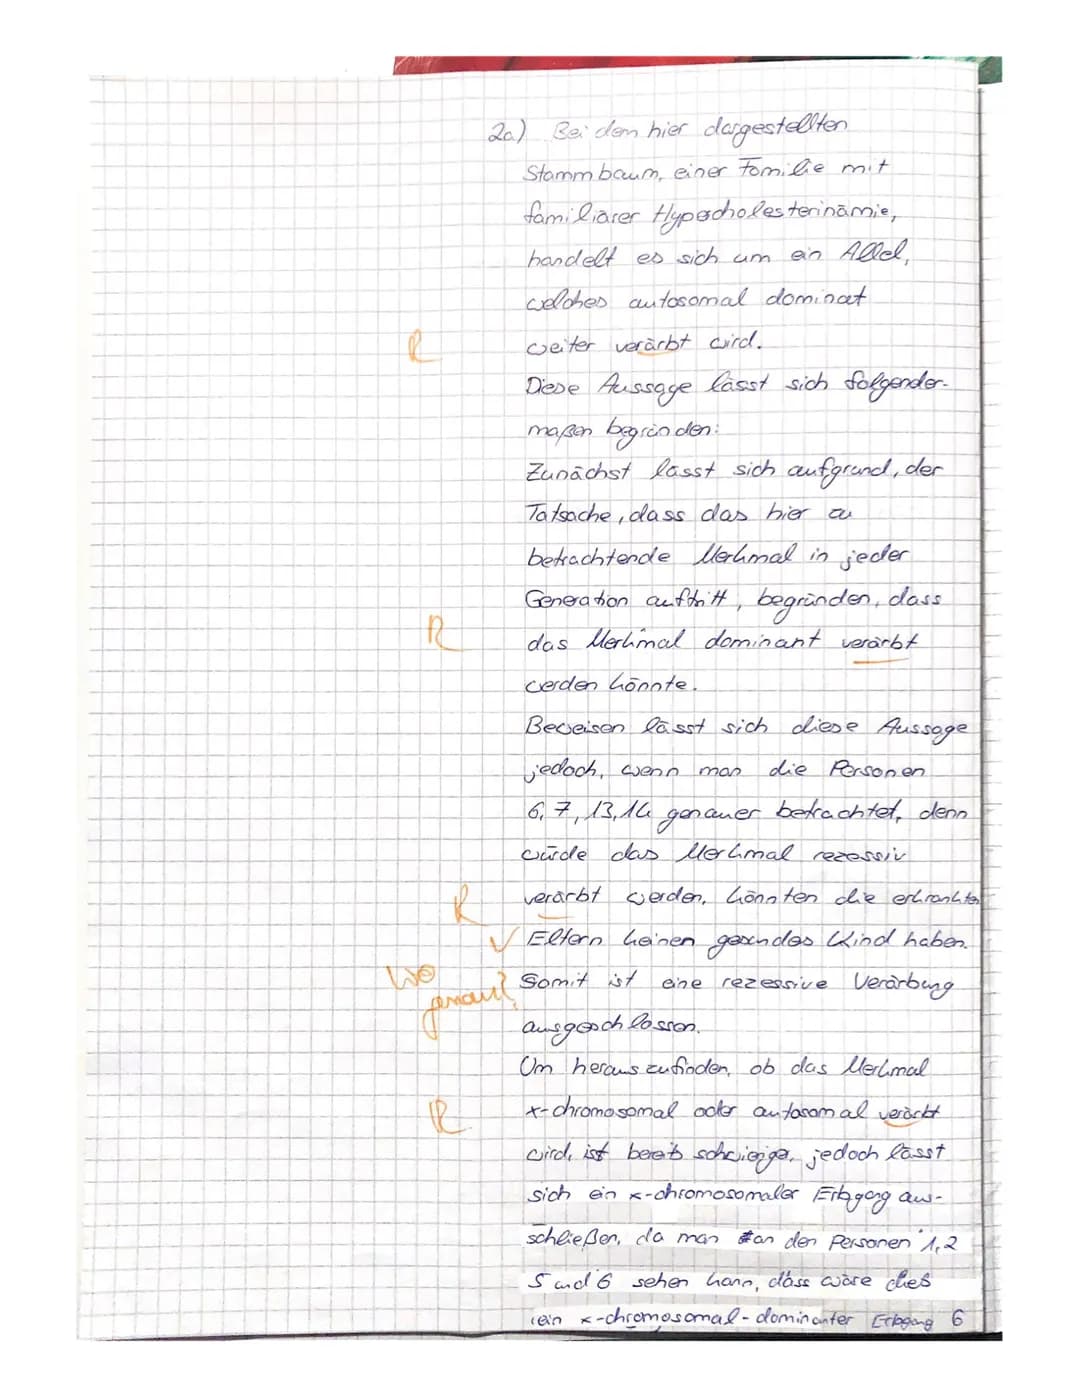 2a) Bei dem hier dargestellten
Stammbaum, einer Familie mit
familiärer Hypercholesterinämie,
handelt es sich um ein Allel,
welches autosomal dominat
R weiter verärbt wird.
Diese Aussage lässt sich folgender-
maßen begründen:
Zunächst lässt sich aufgrund, der
Tatsache, dass das hier zu
betrachtende Merkmal in jeder
Generation auftritt, begründen, dass
R das Merkmal dominant verärbt
werden könnte.
Beweisen lässt sich diese Aussage
jedoch, wenn man die Personen
6, 7, 13, 14 genauer betrachtet, denn
würde das Merkmal rezessiv
R verärbt werden, könnten die erkrankten
✓ Eltern keinen gesundes Kind haben.
Wo genau? Somit ist eine rezessive Verärbung
ausgeschlossen.
Um herauszufinden, ob das Merkmal
R x-chromosomal oder autosomal verärbt
wird, ist bereits schwieriger, jedoch lässt
sich ein x-chromosomaler Erbgang aus-
schließen, da man an den Personen 1, 2
5 und 6 sehen kann, dass wäre dies
ein x-chromosomal-dominanter Erbgang 6